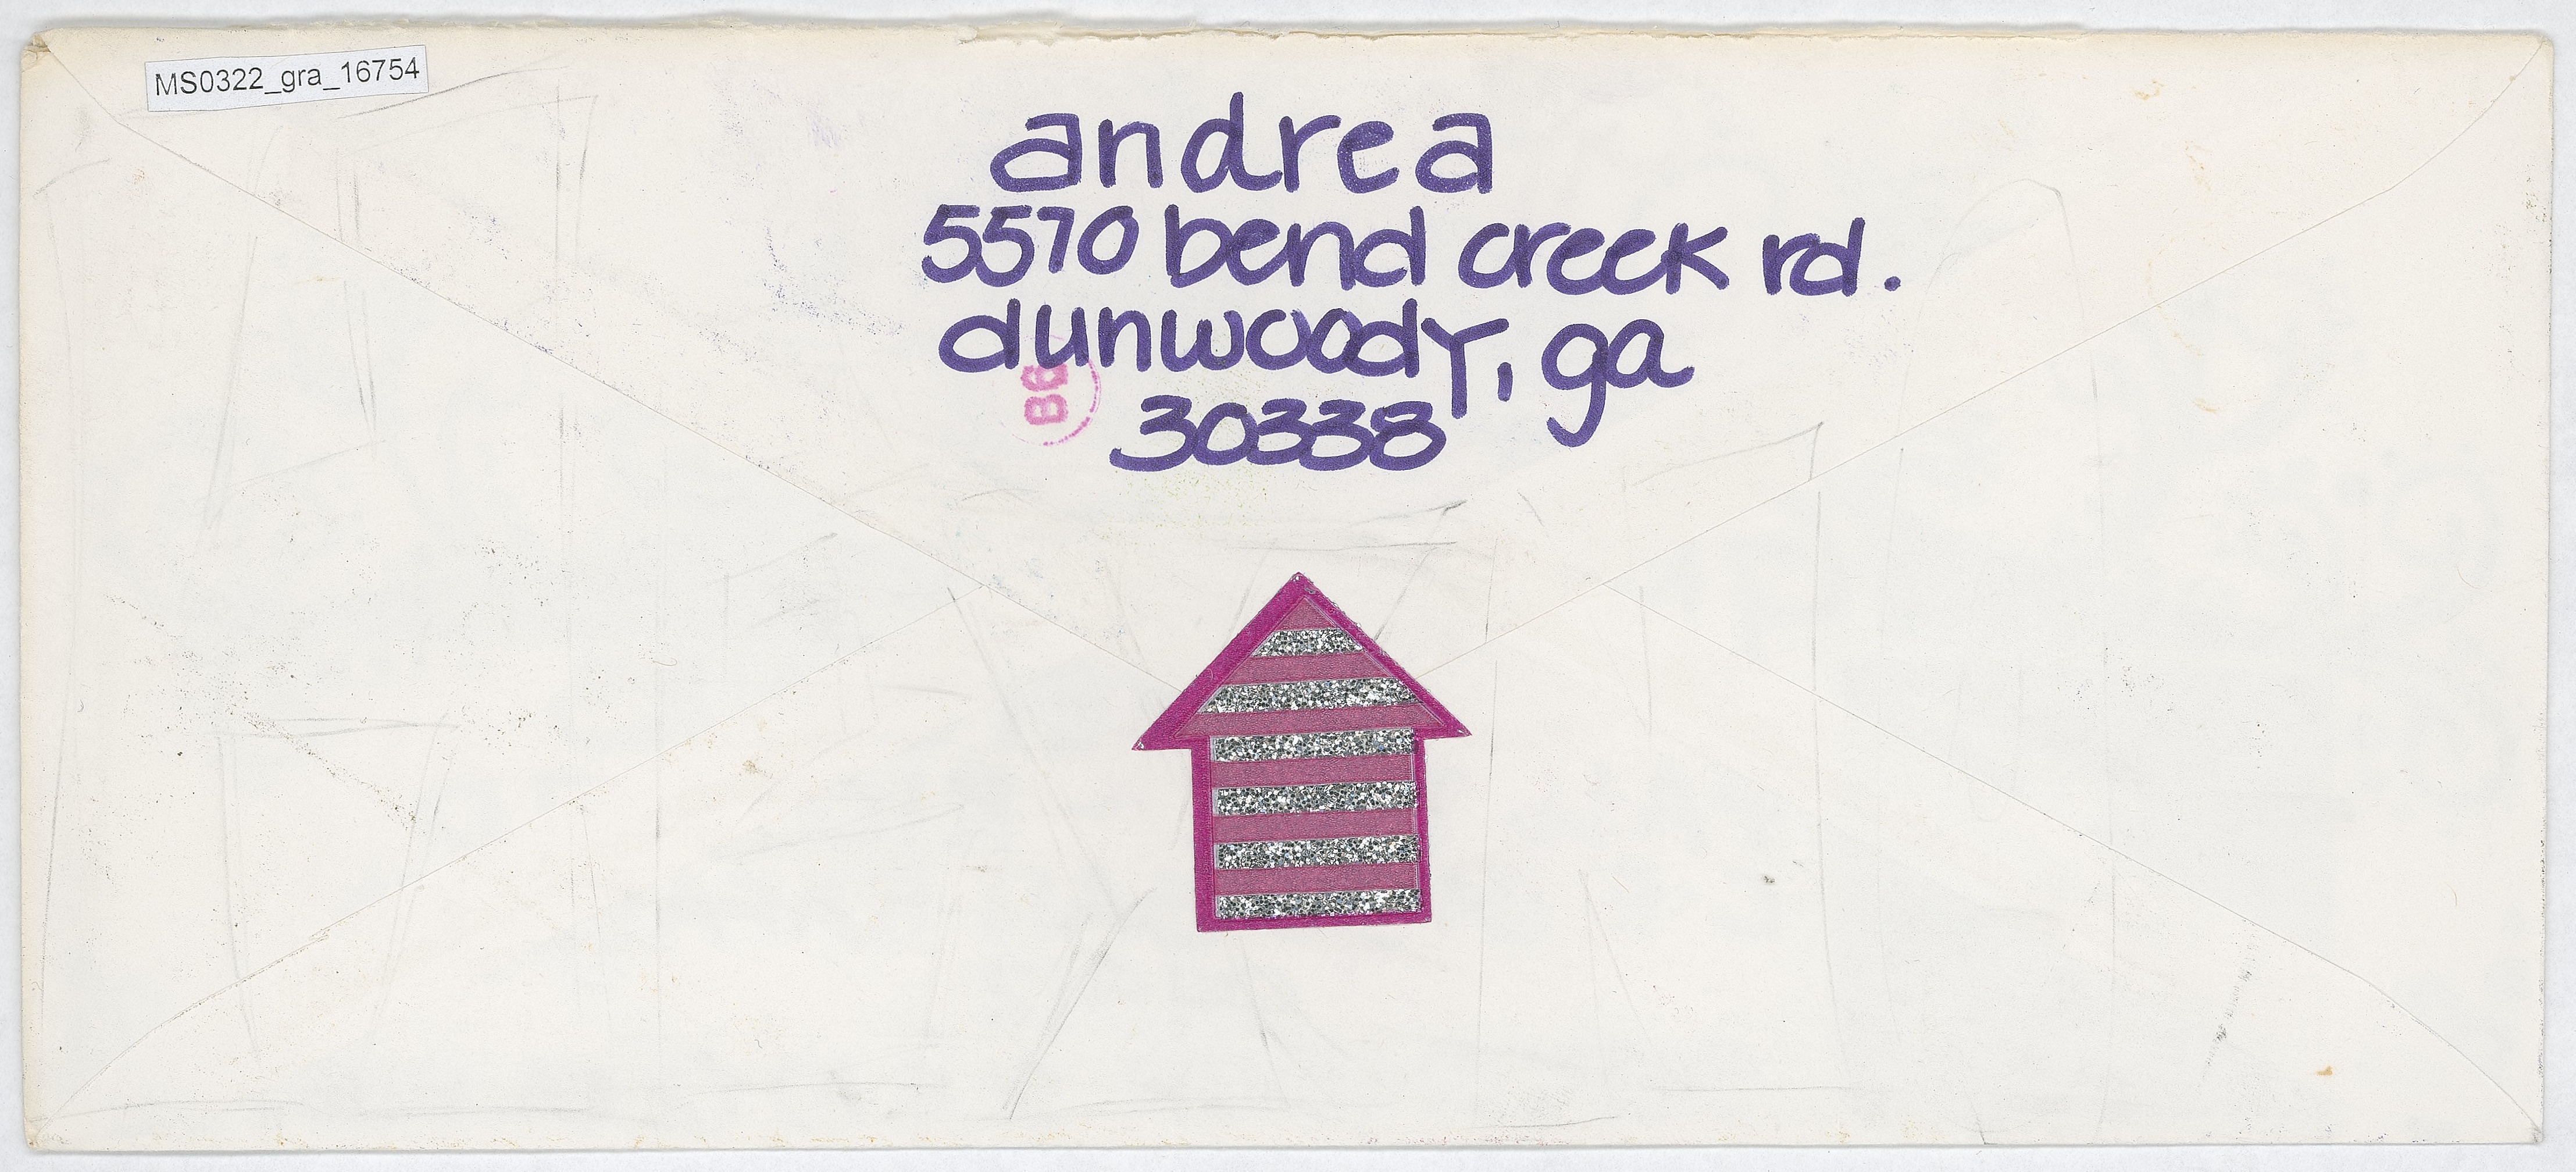 MS0322_gra_16754
andrea
5570 bend creek rd.
dunwoody, ga
30338